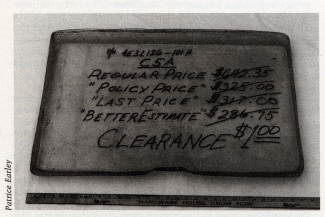 P/N 4E32126-101A
C5A
REGULAR PRICE $647.35
"POLICY PRICE" $325.00
"LAST PRICE" $317.00
"BETTER ESTIMATE" $286.75
CLEARANCE $1.00
Patrice Earley